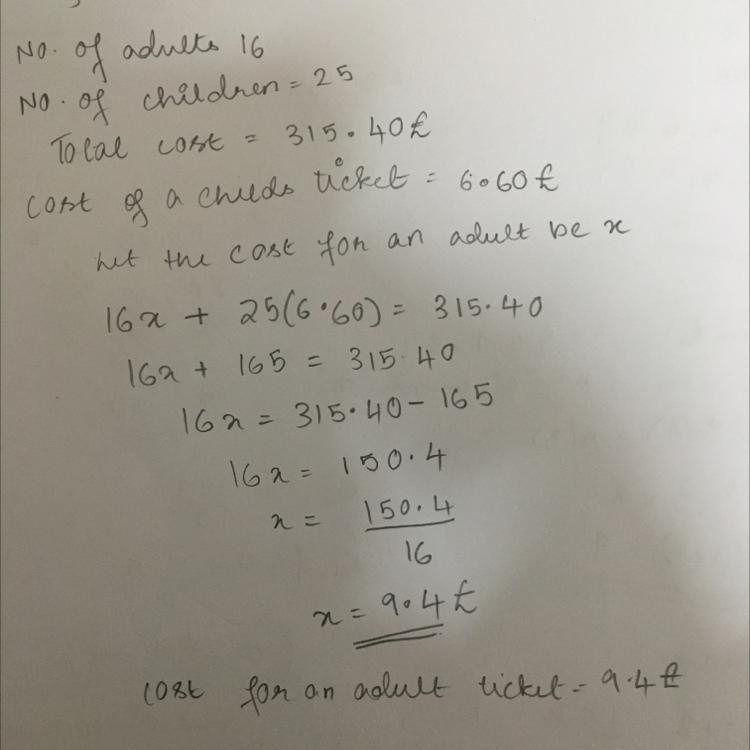 No. of adults 16
No. of children = 25
Total cost = 315.40£
Cost of a childs ticket = 6.60£
Let the cost for an adult be x
16x + 25(6.60) = 315.40
16x + 165 = 315.40
16x = 315.40 - 165
16x = 150.4
x = 150.4
16
x = 9.4£
Cost for an adult ticket = 9.4£